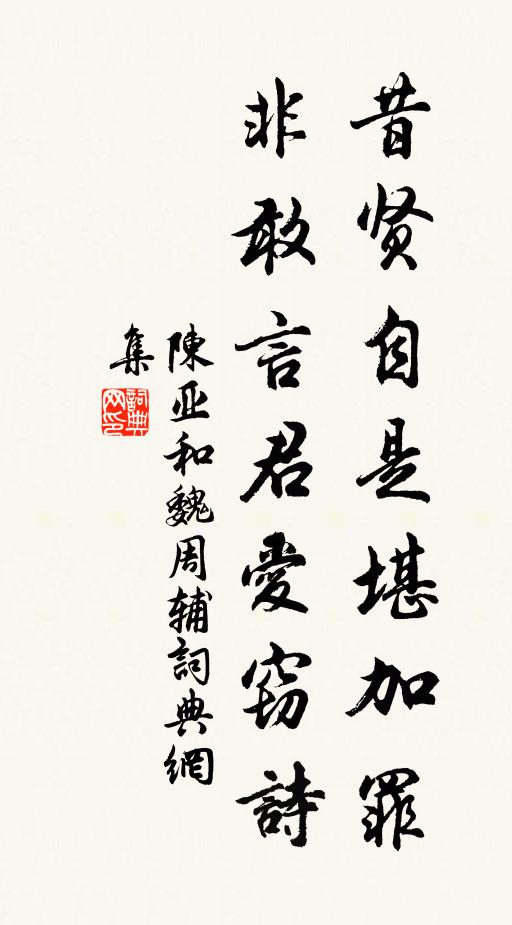 昔贤自是堪加罪
非敢言君愛窃詩
陳亚和魏周辅詞典網
集
詞典
网印